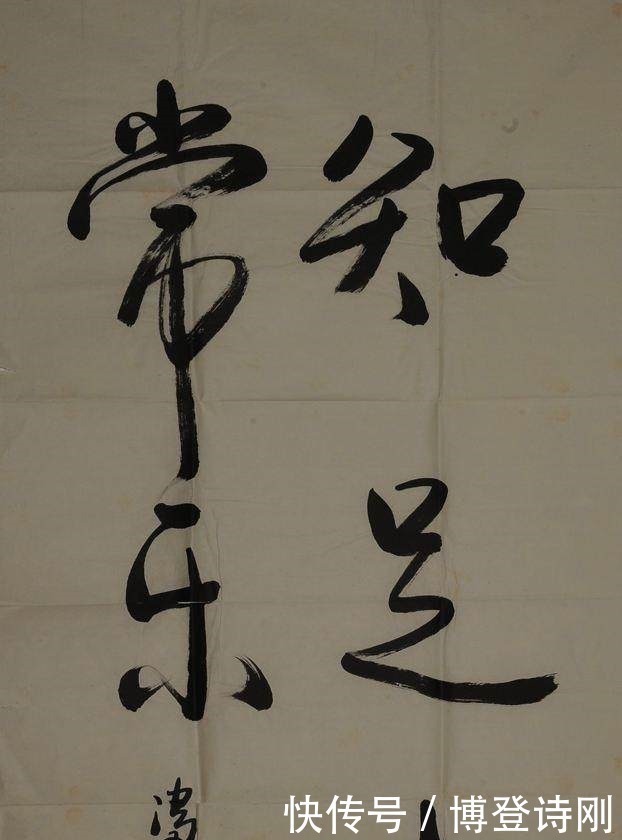 知足
常乐
快传号 / 博登诗刚